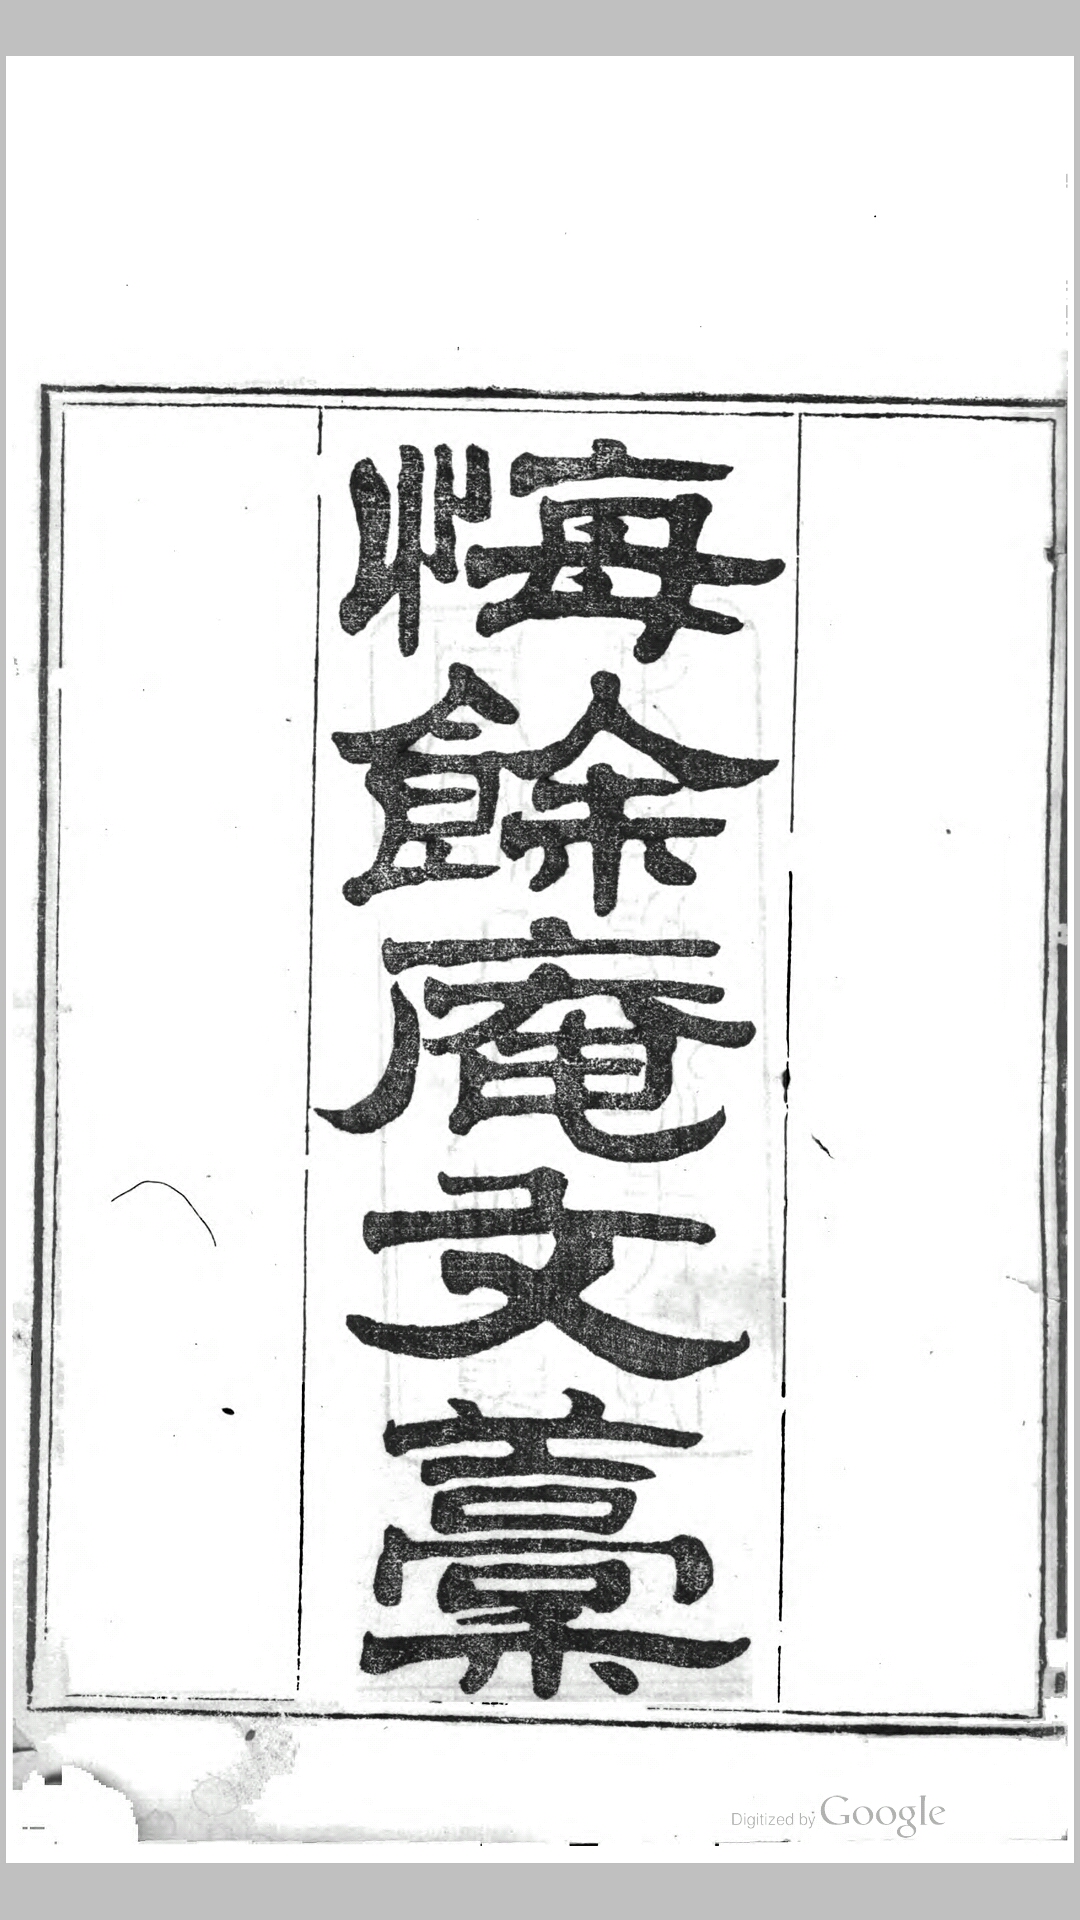 悔餘庵文稾
Digitized by Google